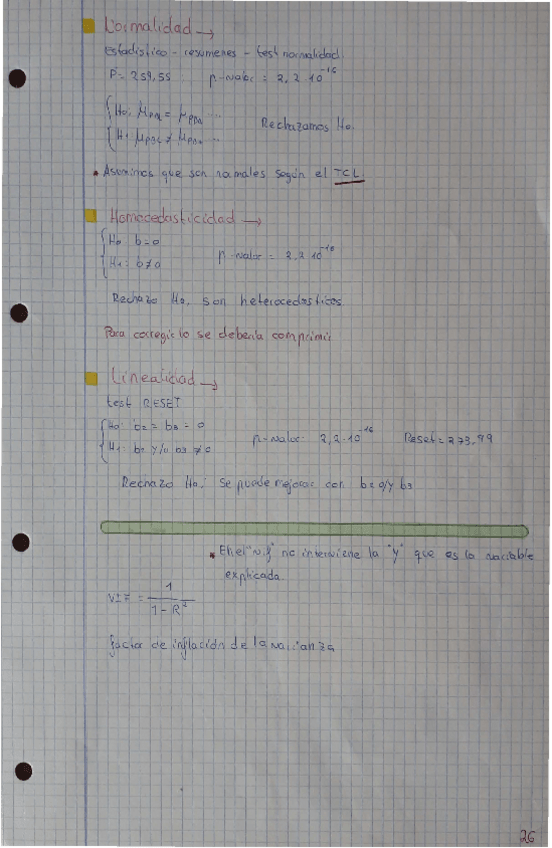 Normalidad →
Estadístico - resúmenes - test normalidad.
P = 259,55 p-valor = 2,2·10^-16
H0: μ = μ ...
H1 μ ≠ μ ...
Rechazamos H0.
• Asumimos que son normales según el TCL
Homocedasticidad →
H0 b=0
H1: b≠0
p-valor = 2,2·10^-16
Rechazo H0, son heterocedasticos
Para corregirlo se debería comprimir
Linealidad →
test RESET
H0: b2 = b3 = 0
H1: b2 y/o b3 ≠ 0
p-valor: 2,2·10^-16 Reset = 273,99
Rechazo H0: se puede mejorar con b2 o/y b3
• En el "vif" no interviene la "y" que es la variable
explicada.
VIF = 1 / (1 - R²)
factor de inflación de la varianza
26